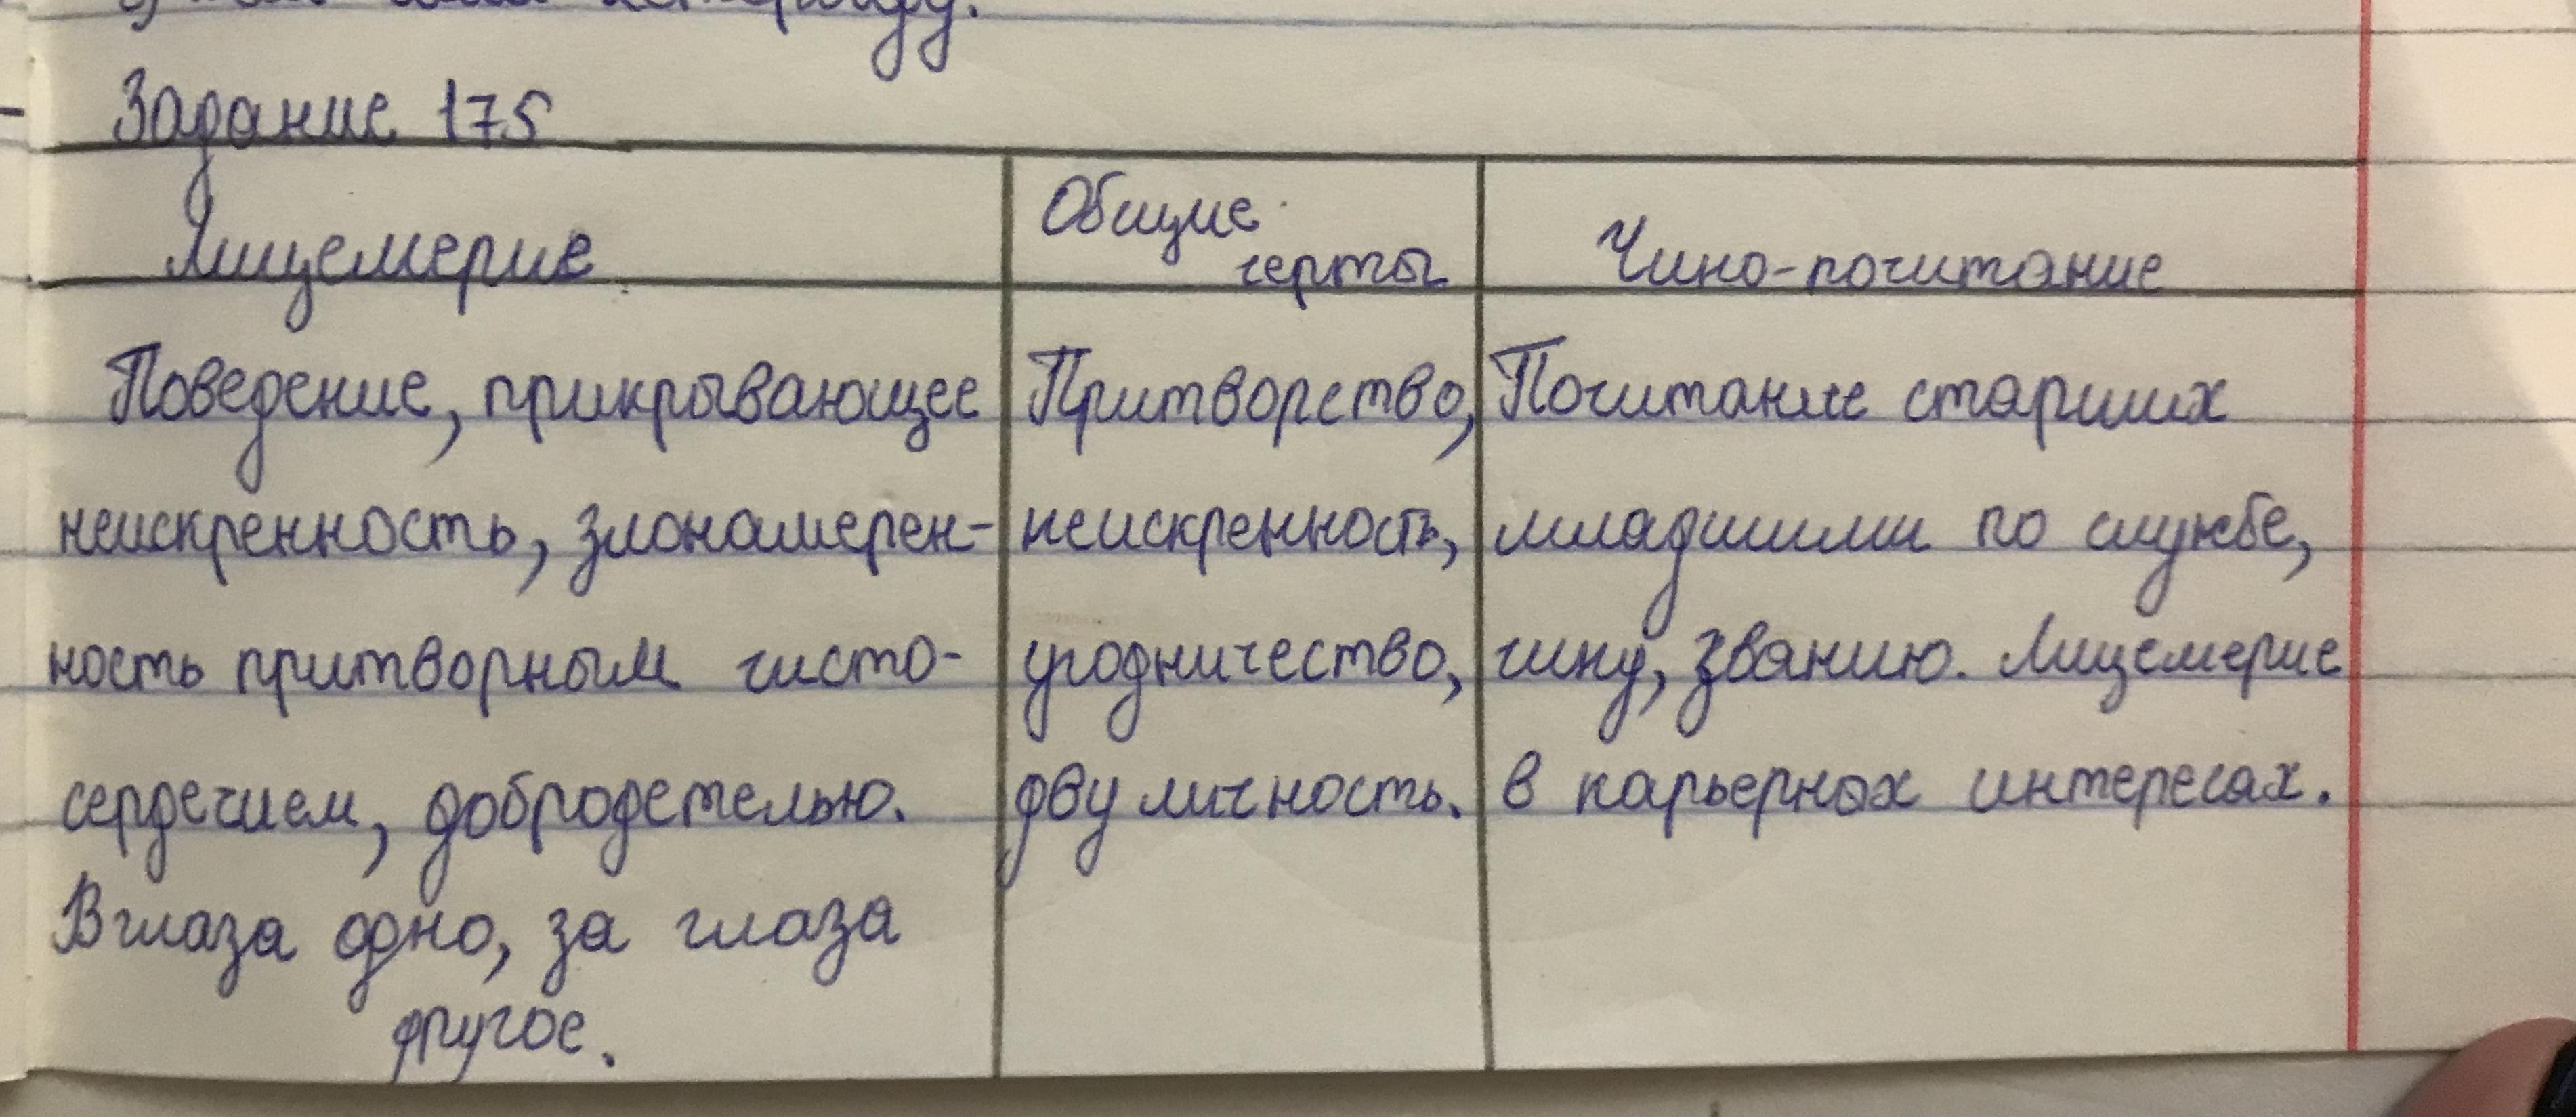 Задание 175
Лицемерие
Общие
черты
Чино-почитание
Поведение, прикрывающее
неискренность, злонамерен-
ность притворным чисто-
сердечием, добродетелью.
В глаза одно, за глаза
другое.
Притворство,
неискренность,
угодничество,
двуличность.
Почитание старших
младшими по службе,
чину, званию. Лицемерие
в карьерных интересах.